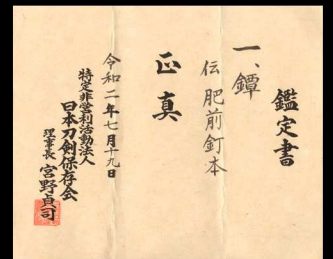 鑑定書
一、鐔
伝 肥前釘本
正真
令和二年七月十九日
特定非営利活動法人
日本刀剣保存会
理事長 宮野貞司